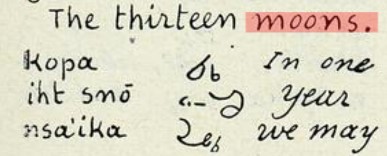 The thirteen moons.
kopa In one
iht snō year
nsaika we may